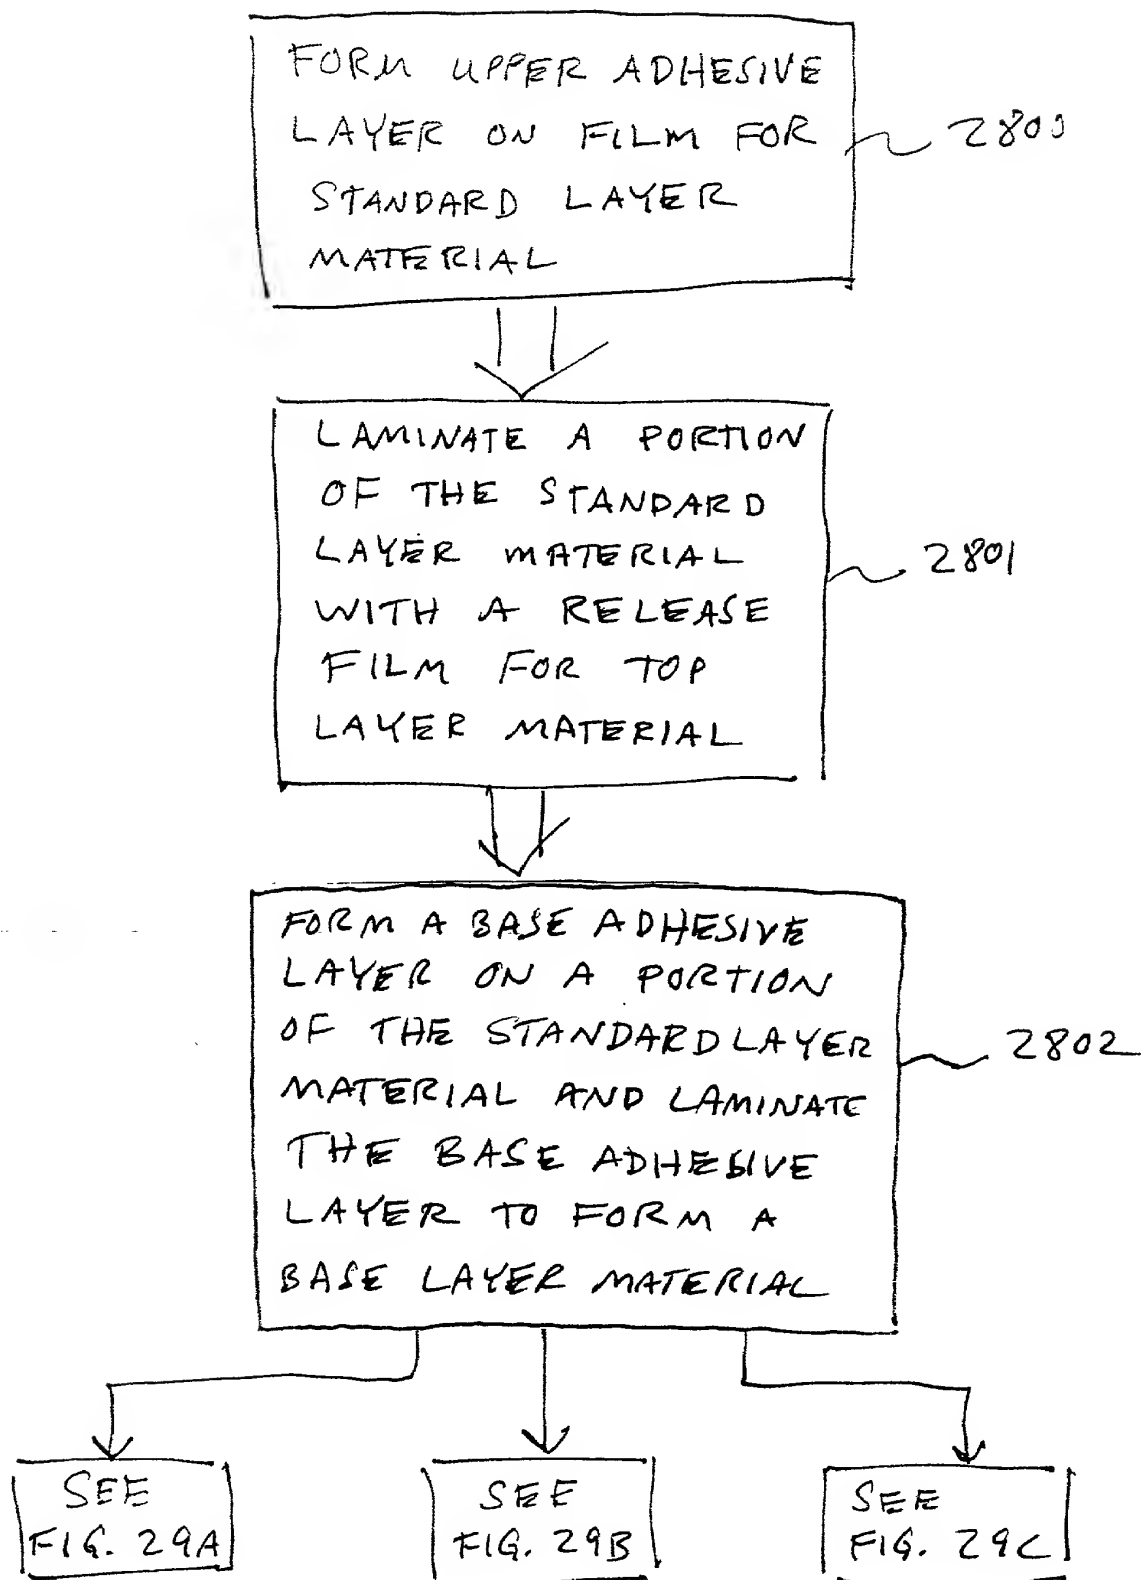 FORM UPPER ADHESIVE
LAYER ON FILM FOR
STANDARD LAYER
MATERIAL
2800
LAMINATE A PORTION
OF THE STANDARD
LAYER MATERIAL
WITH A RELEASE
FILM FOR TOP
LAYER MATERIAL
2801
FORM A BASE ADHESIVE
LAYER ON A PORTION
OF THE STANDARD LAYER
MATERIAL AND LAMINATE
THE BASE ADHESIVE
LAYER TO FORM A
BASE LAYER MATERIAL
2802
SEE
FIG. 29A
SEE
FIG. 29B
SEE
FIG. 29C